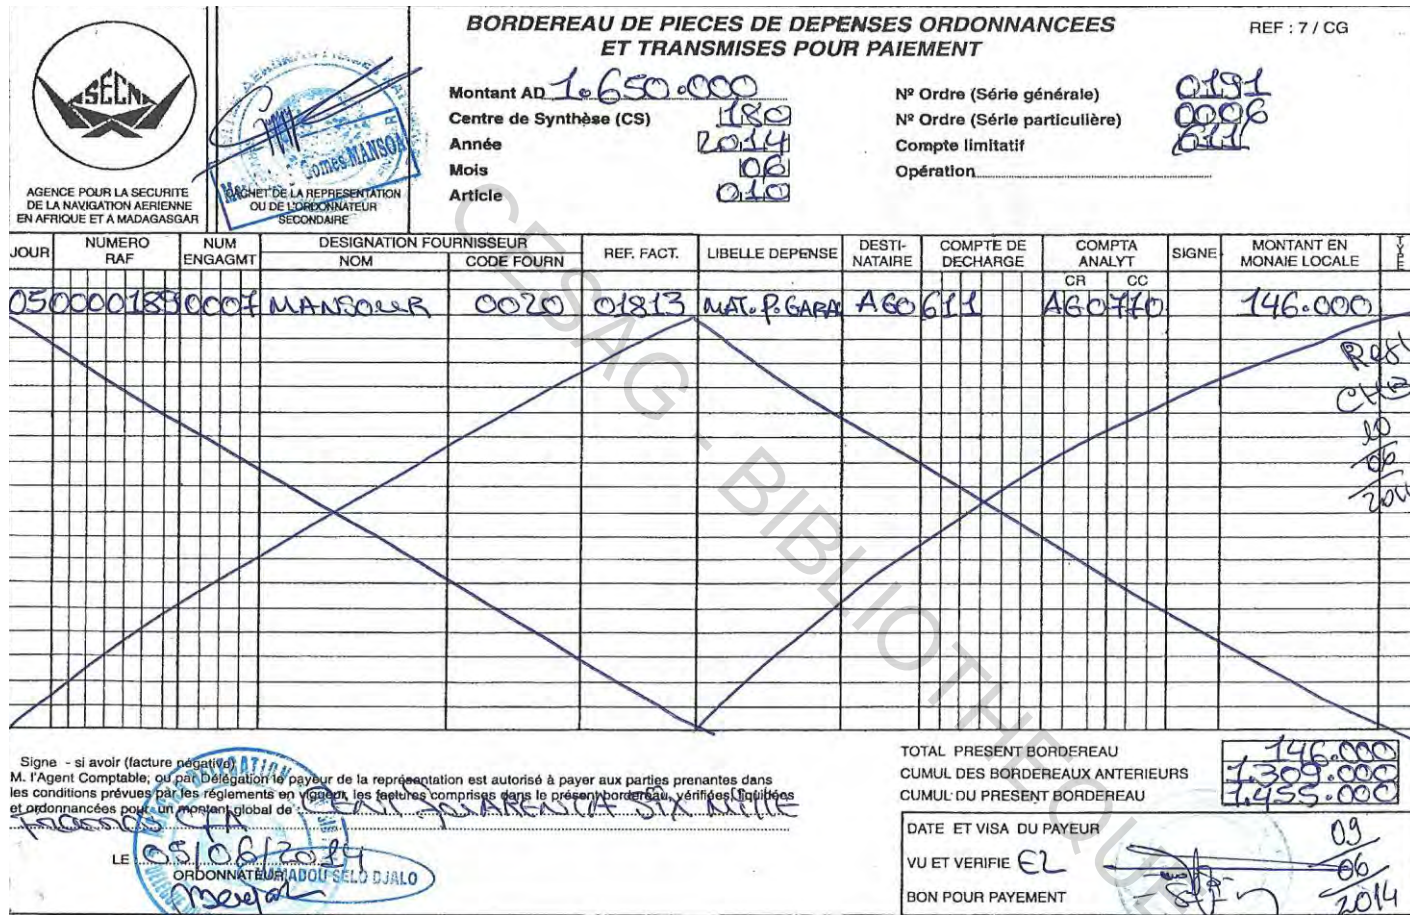 BORDEREAU DE PIECES DE DEPENSES ORDONNANCEES
ET TRANSMISES POUR PAIEMENT
REF : 7 / CG
ASECNA
AGENCE POUR LA SECURITE
DE LA NAVIGATION AERIENNE
EN AFRIQUE ET A MADAGASGAR
Gomes MANSOA
CACHET DE LA REPRESENTATION
OU DE L'ORDONNATEUR
SECONDAIRE
Montant AD 1.650.000
Centre de Synthèse (CS) 180
Année 2014
Mois 06
Article 010
Nº Ordre (Série générale) 0191
Nº Ordre (Série particulière) 0006
Compte limitatif 611
Opération
JOUR NUMERO RAF NUM ENGAGMT DESIGNATION FOURNISSEUR NOM CODE FOURN REF. FACT. LIBELLE DEPENSE DESTI-NATAIRE COMPTE DE DECHARGE COMPTA ANALYT CR CC SIGNE MONTANT EN MONAIE LOCALE TYPE
05 0000189 0007 MANSOUR 0020 01813 MAT. P. GARA AGO 611 AGO 770 146.000
10
06
CESAG - BIBLIOTHEQUE
Signe - si avoir (facture négative)
M. l'Agent Comptable; ou par Délégation le payeur de la représentation est autorisé à payer aux parties prenantes dans
les conditions prévues par les réglements en vigueur, les factures comprises dans le présent bordereau, vérifiées, liquidées
et ordonnancées pour un montant global de : CENT QUARENTA SIX MILLE
FRANCS CFA
LE 05/06/2014
ORDONNATEUR
MAMADOU SELO DJALO
TOTAL PRESENT BORDEREAU 146.000
CUMUL DES BORDEREAUX ANTERIEURS 1.309.000
CUMUL DU PRESENT BORDEREAU 1.455.000
DATE ET VISA DU PAYEUR 09
VU ET VERIFIE 06
BON POUR PAYEMENT 2014